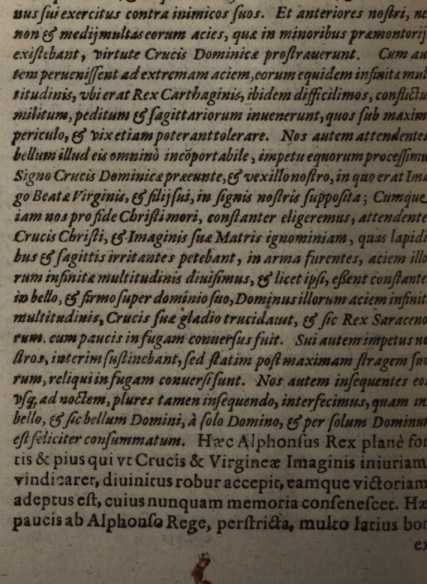 nus sui exercitus contra inimicos suos. Et anteriores nostri, ne
non & medij multas eorum acies, quæ in minoribus præmontorij
existebant, virtute Crucis Dominicæ prostrauerunt. Cum au
tem peruenissent ad extremam aciem, eorum equidem infinitæ mul
titudinis, vbi erat Rex Carthaginis, ibidem difficilimos, conflictu
militum, peditum & sagittariorum inuenerunt, quos sub maxim
periculo, & vix etiam poterant tolerare. Nos autem attendentes
bellum illud eis omninò incōportabile, impetu equorum processimu
Signo Crucis Dominicæ præeunte, & vexillo nostro, in quo erat Ima
go Beatæ Virginis, & filij sui, in signis nostris supposita; Cumque
iam nos pro fide Christi mori, constanter eligeremus, attendente
Crucis Christi, & Imaginis suæ Matris ignominiam, quas lapidi
bus & sagittis irritantes petebant, in arma furentes, aciem illo
rum infinitæ multitudinis diuisimus, & licet ipsi, essent constante
in bello, & firmo super dominio suo, Dominus illorum aciem infinit
multitudinis, Crucis suæ gladio trucidauit, & sic Rex Saraceno
rum. cum paucis in fugam conuersus fuit. Sui autem impetus no
stros, interim sustinebant, sed statim post maximam stragem suo
rum, reliqui in fugam conuersi sunt. Nos autem insequentes eo
vsq; ad noctem, plures tamen insequendo, interfecimus, quam in
bello, & sic bellum Domini, à solo Domino, & per solum Dominum
est feliciter consummatum. Hæc Alphonsus Rex planè for
tis & pius qui vt Crucis & Virgineæ Imaginis iniuriam
vindicaret, diuinitus robur accepit, eamque victoriam
adeptus est, cuius nunquam memoria consenescet. Hæ
paucis ab Alphonso Rege, perstricta, multo latius bor
ex